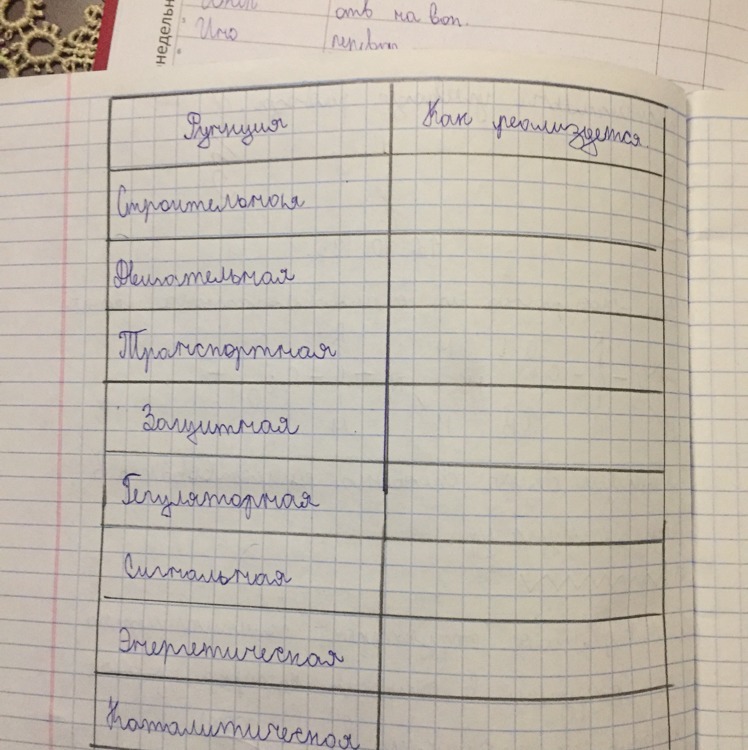 отв на воп.
Изо
недельн
Функция Как реализуется
Строительная
Двигательная
Транспортная
Защитная
Регуляторная
Сигнальная
Энергетическая
Каталитическая